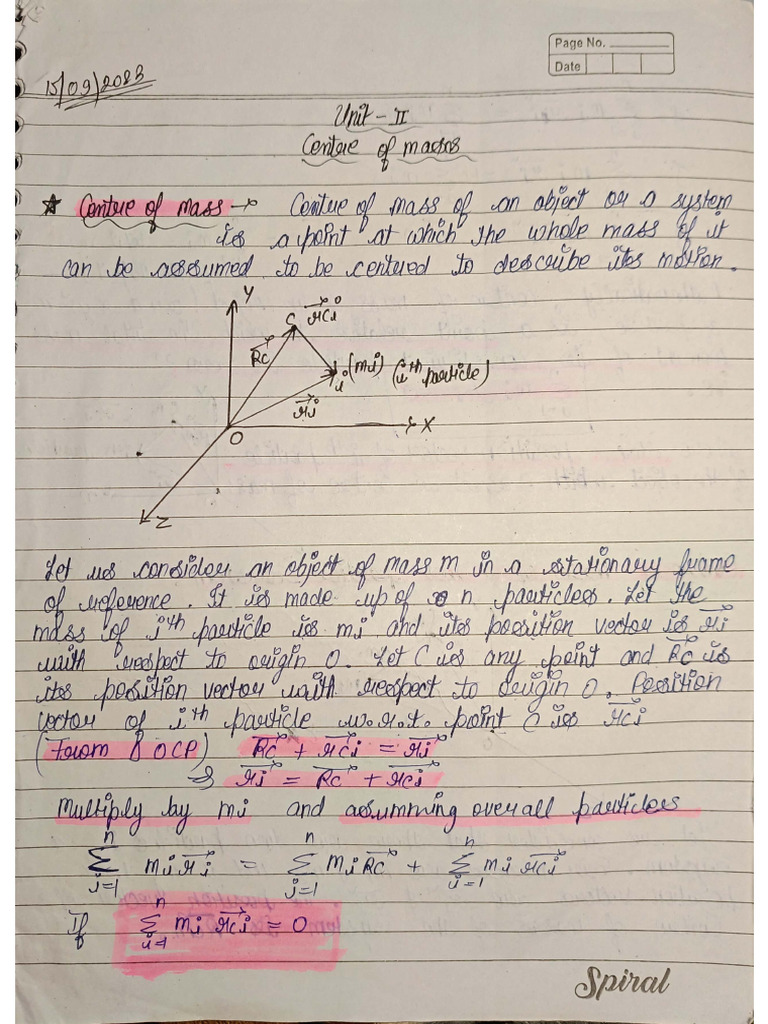 Page No.
Date
15/09/2023
Unit - II
Centre of mass
☆ Centre of mass → Centre of mass of an object or a system
is a point at which the whole mass of it
can be assumed to be centred to describe its motion.
Y
C
r⃗ci
R⃗c
i (mi) (ith particle)
r⃗i
O
X
Z
Let us consider an object of mass m in a stationary frame
of reference. It is made up of n particles. Let the
mass of ith particle is mi and its position vector is r⃗i
with respect to origin O. Let C is any point and R⃗c is
its position vector with respect to origin O. Position
vector of ith particle w.r.t. point C is r⃗ci
(From Δ OCP) R⃗c + r⃗ci = r⃗i
⇒ r⃗i = R⃗c + r⃗ci
Multiply by mi and assumming overall particles
n∑i=1 mi r⃗i = n∑i=1 mi R⃗c + n∑i=1 mi r⃗ci
If n∑i=1 mi r⃗ci = 0
Spiral